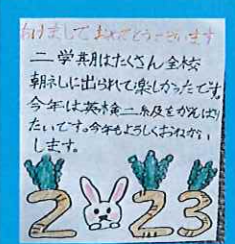 あけましておめでとうございます
二学期はたくさん全校
朝ネしに出られて楽しかったです。
今年は英検二級をがんばり
たいです。今年もよろしくおねがい
します。
2023